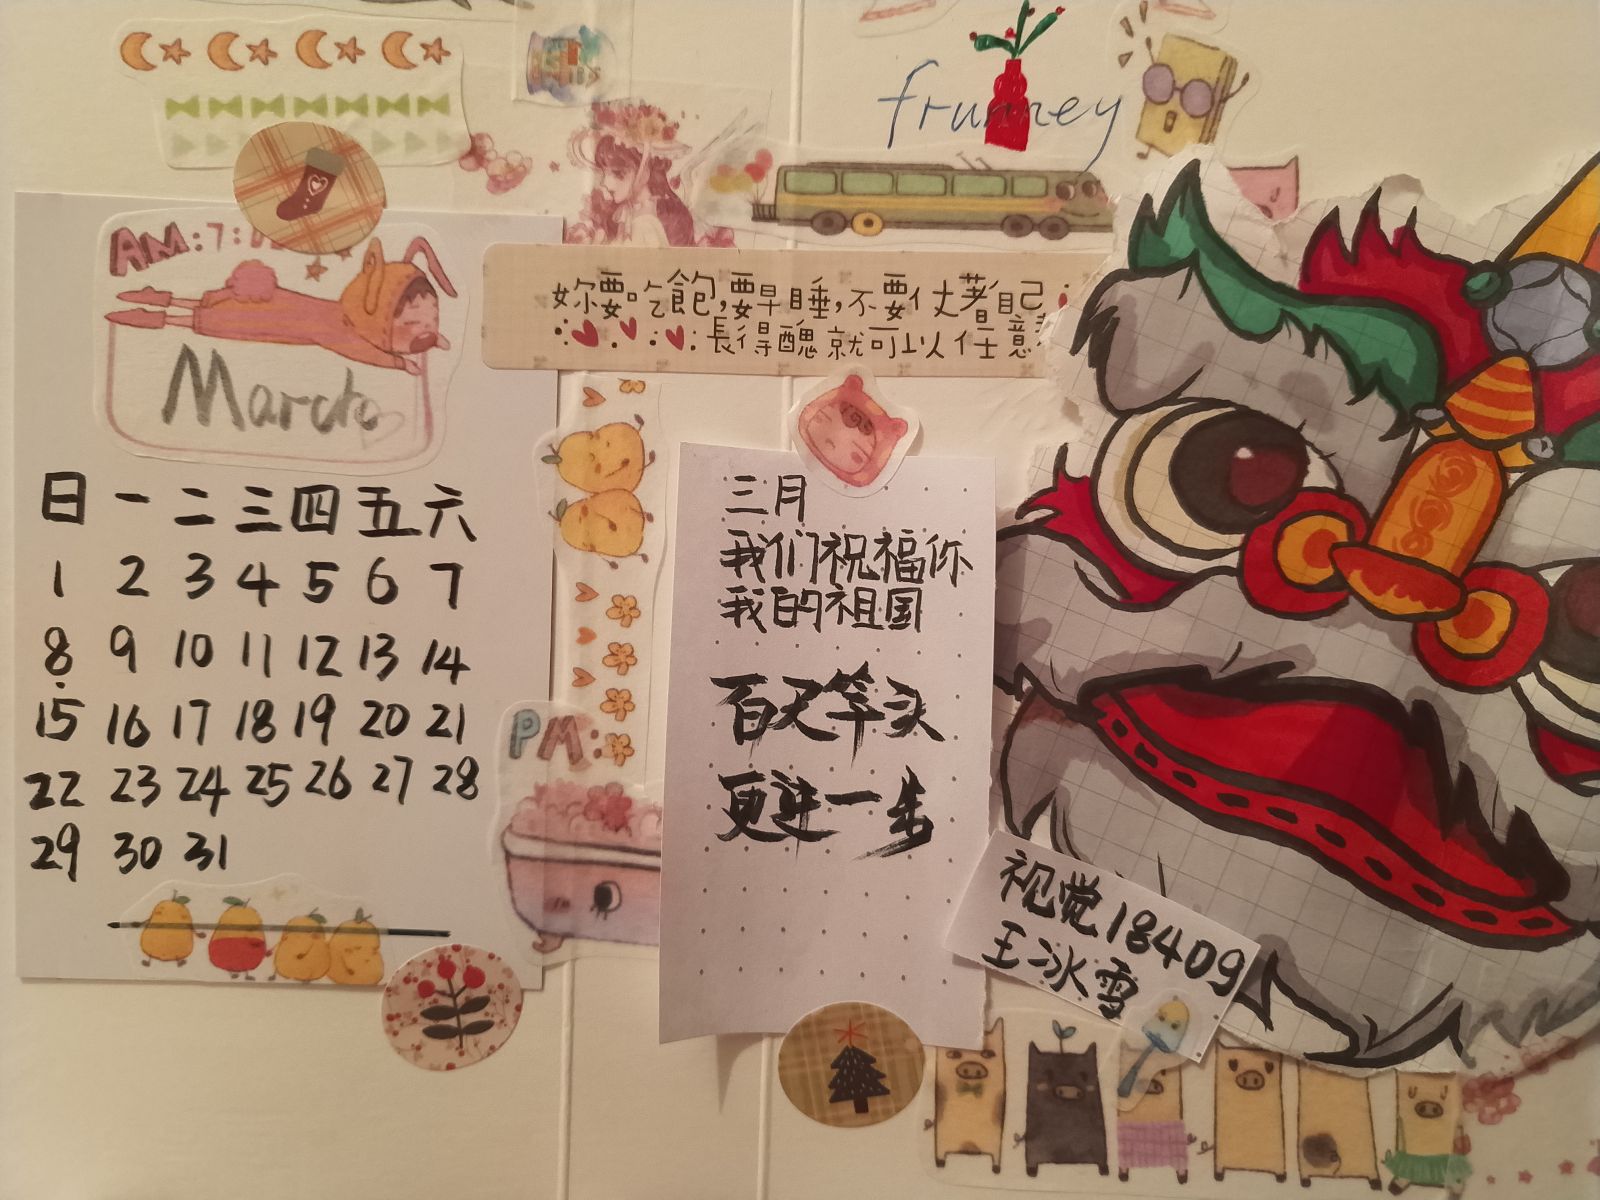 frunney
AM:7:
妳要吃飽,要早睡,不要仗著自己
長得醜就可以任意
March
日 一 二 三 四 五 六
1 2 3 4 5 6 7
8 9 10 11 12 13 14
15 16 17 18 19 20 21
22 23 24 25 26 27 28
29 30 31
PM:
三月
我们祝福你
我的祖国
百尺竿头
更进一步
视觉18409
王冰雪